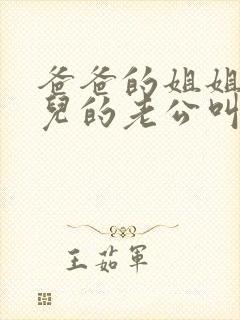 爸爸的姐姐
兒的老公叫
王茹軍